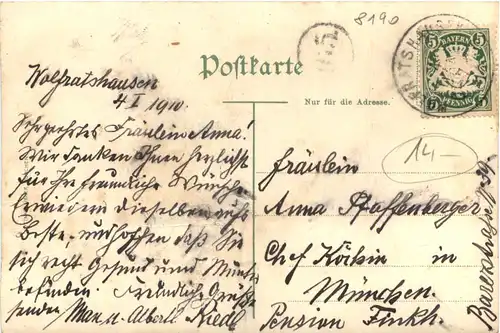 8190
Postkarte
Nur für die Adresse.
BAYERN
5 5
PFENNIG
14-
Wolfratshausen
4 I 1910.
Sehrgeehrtes Fräulein Anna!
Wir danken Ihnen herzlichst
für Ihre freundliche Wünsche
Erwiedern dieselben aufs
Beste, und hoffen daß Sie
sich recht Gesund und Munter
befinden. Freundliche Grüße
senden Max u. Albert Riedl
Fräulein
Anna Pfaffenberger
Chef Köchin in
München.
Pension Finkh.